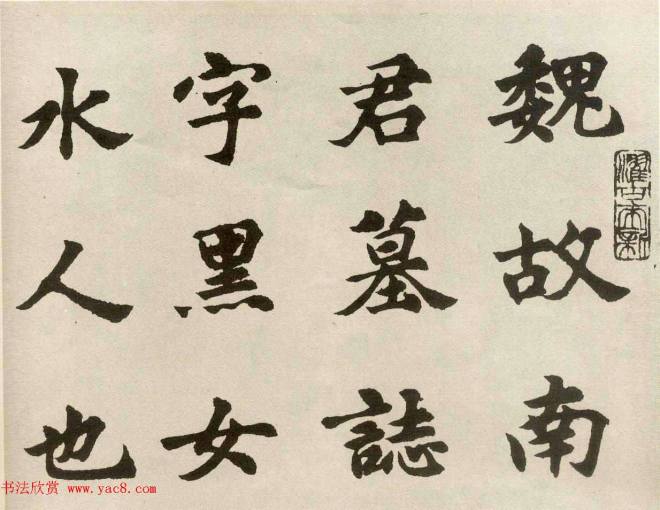 魏故南
君墓誌
字黑女
水人也
书法欣赏 www.yac8.com